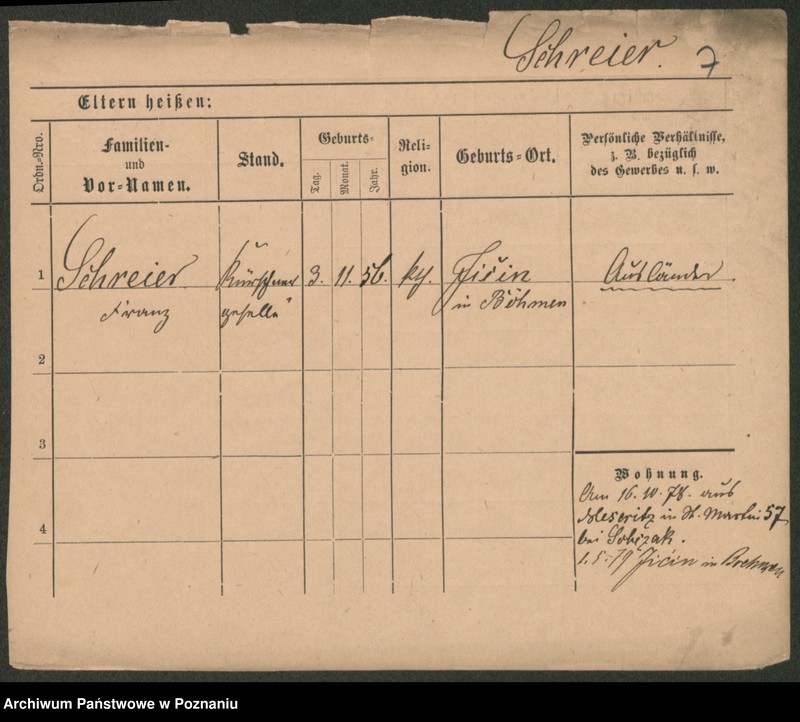 Schreier. 7
Eltern heißen:
Ordn.-Nro.
Familien-
und
Vor-Namen.
Stand.
Geburts-
Tag.
Monat.
Jahr.
Reli-
gion.
Geburts-Ort.
Persönliche Verhältnisse,
z. B. bezüglich
des Gewerbes u. s. w.
1 Schreier Kürschner 3. 11. 56. kth. Jičin Ausländer.
Franz geselle in Böhmen
2
3
4
Wohnung.
Am 16. 10. 78. aus
Meseritz in St. Martin 57
bei Sobczak.
1. 5. 79 Jičin in Boehmen
Archiwum Państwowe w Poznaniu